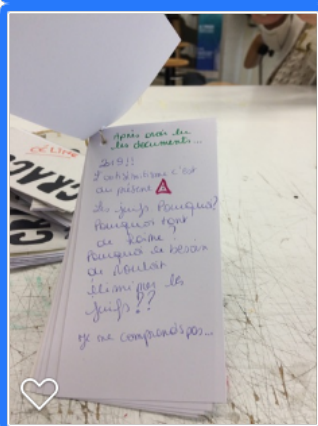 Après avoir lu
les documents...
2019!!
L'antisémitisme c'est
au présent
Les juifs. Pourquoi?
Pourquoi tant
de haine!
Pourquoi ce besoin
de vouloir
éliminer les
juifs??
Je ne comprends pas...
GRAC